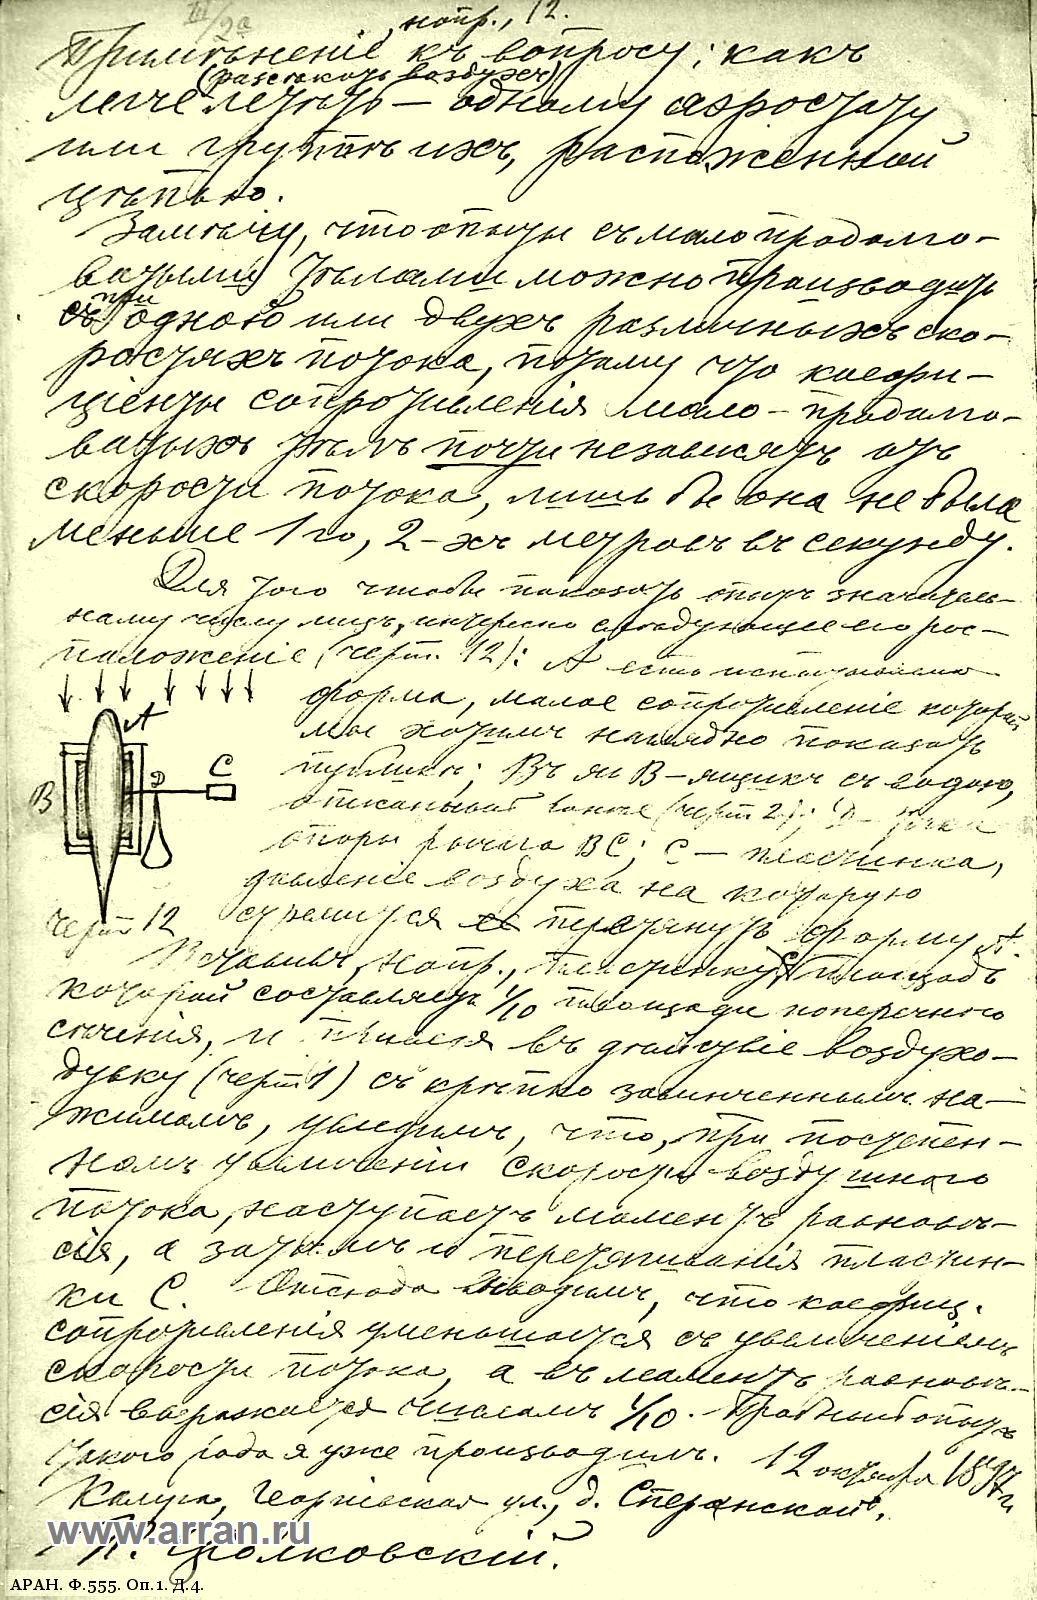 III/2а
напр., 12.
Примѣненіе къ вопросу: какъ
(разсѣкать воздухъ)
легче летѣть — одному аэростату
или группѣ ихъ, расположенной
цѣпью.
Замѣчу, что опыты съ мало продолго-
ватыми тѣлами можно производить
при одною или двухъ различныхъ ско-
ростяхъ потока, потому что коефи-
ціенты сопротивленія мало-продолго-
ватыхъ тѣлъ почти независятъ отъ
скорости потока, лишь бы она не была
меньше 1 го, 2-хъ метровъ въ секунду.
Для того чтобы показать опытъ значитель-
ному числу лицъ, интересно слѣдующее его рас-
положеніе (черт. 12): А есть испытуемая
форма, малое сопротивленіе которой
мы хотимъ наглядно показать
публикѣ; В ящикъ съ водою,
описанный выше (черт 2); D — точка
опоры рычага ВС; С — пластинка,
давленіе воздуха на которую
стремится перетянуть форму А.
А
В
D
С
Черт 12
Вставивъ, напр., пластинку С, площадь
которой составляетъ 1/10 площади поперечного
сѣченія, и приведя въ дѣйствіе воздухо-
дувку (черт 1) съ крѣпко завинченнымъ на-
жимомъ, увидимъ, что, при постепен-
номъ увеличеніи скорости воздушного
потока, наступаетъ моментъ равновѣ-
сія, а затѣмъ и перетягиванія пластин-
ки С. Отсюда выводимъ, что коефиц.
сопротивленія уменьшается съ увеличеніемъ
скорости потока, а въ моментъ равновѣ-
сія выражается числомъ 1/10. опытъ
такого рода я уже производилъ. 12 октября 1897 г.
Калуга, Георгіевская ул., д. Сперанской.
К. Ціолковскій.
www.arran.ru
АРАН. Ф.555. Оп.1. Д.4.